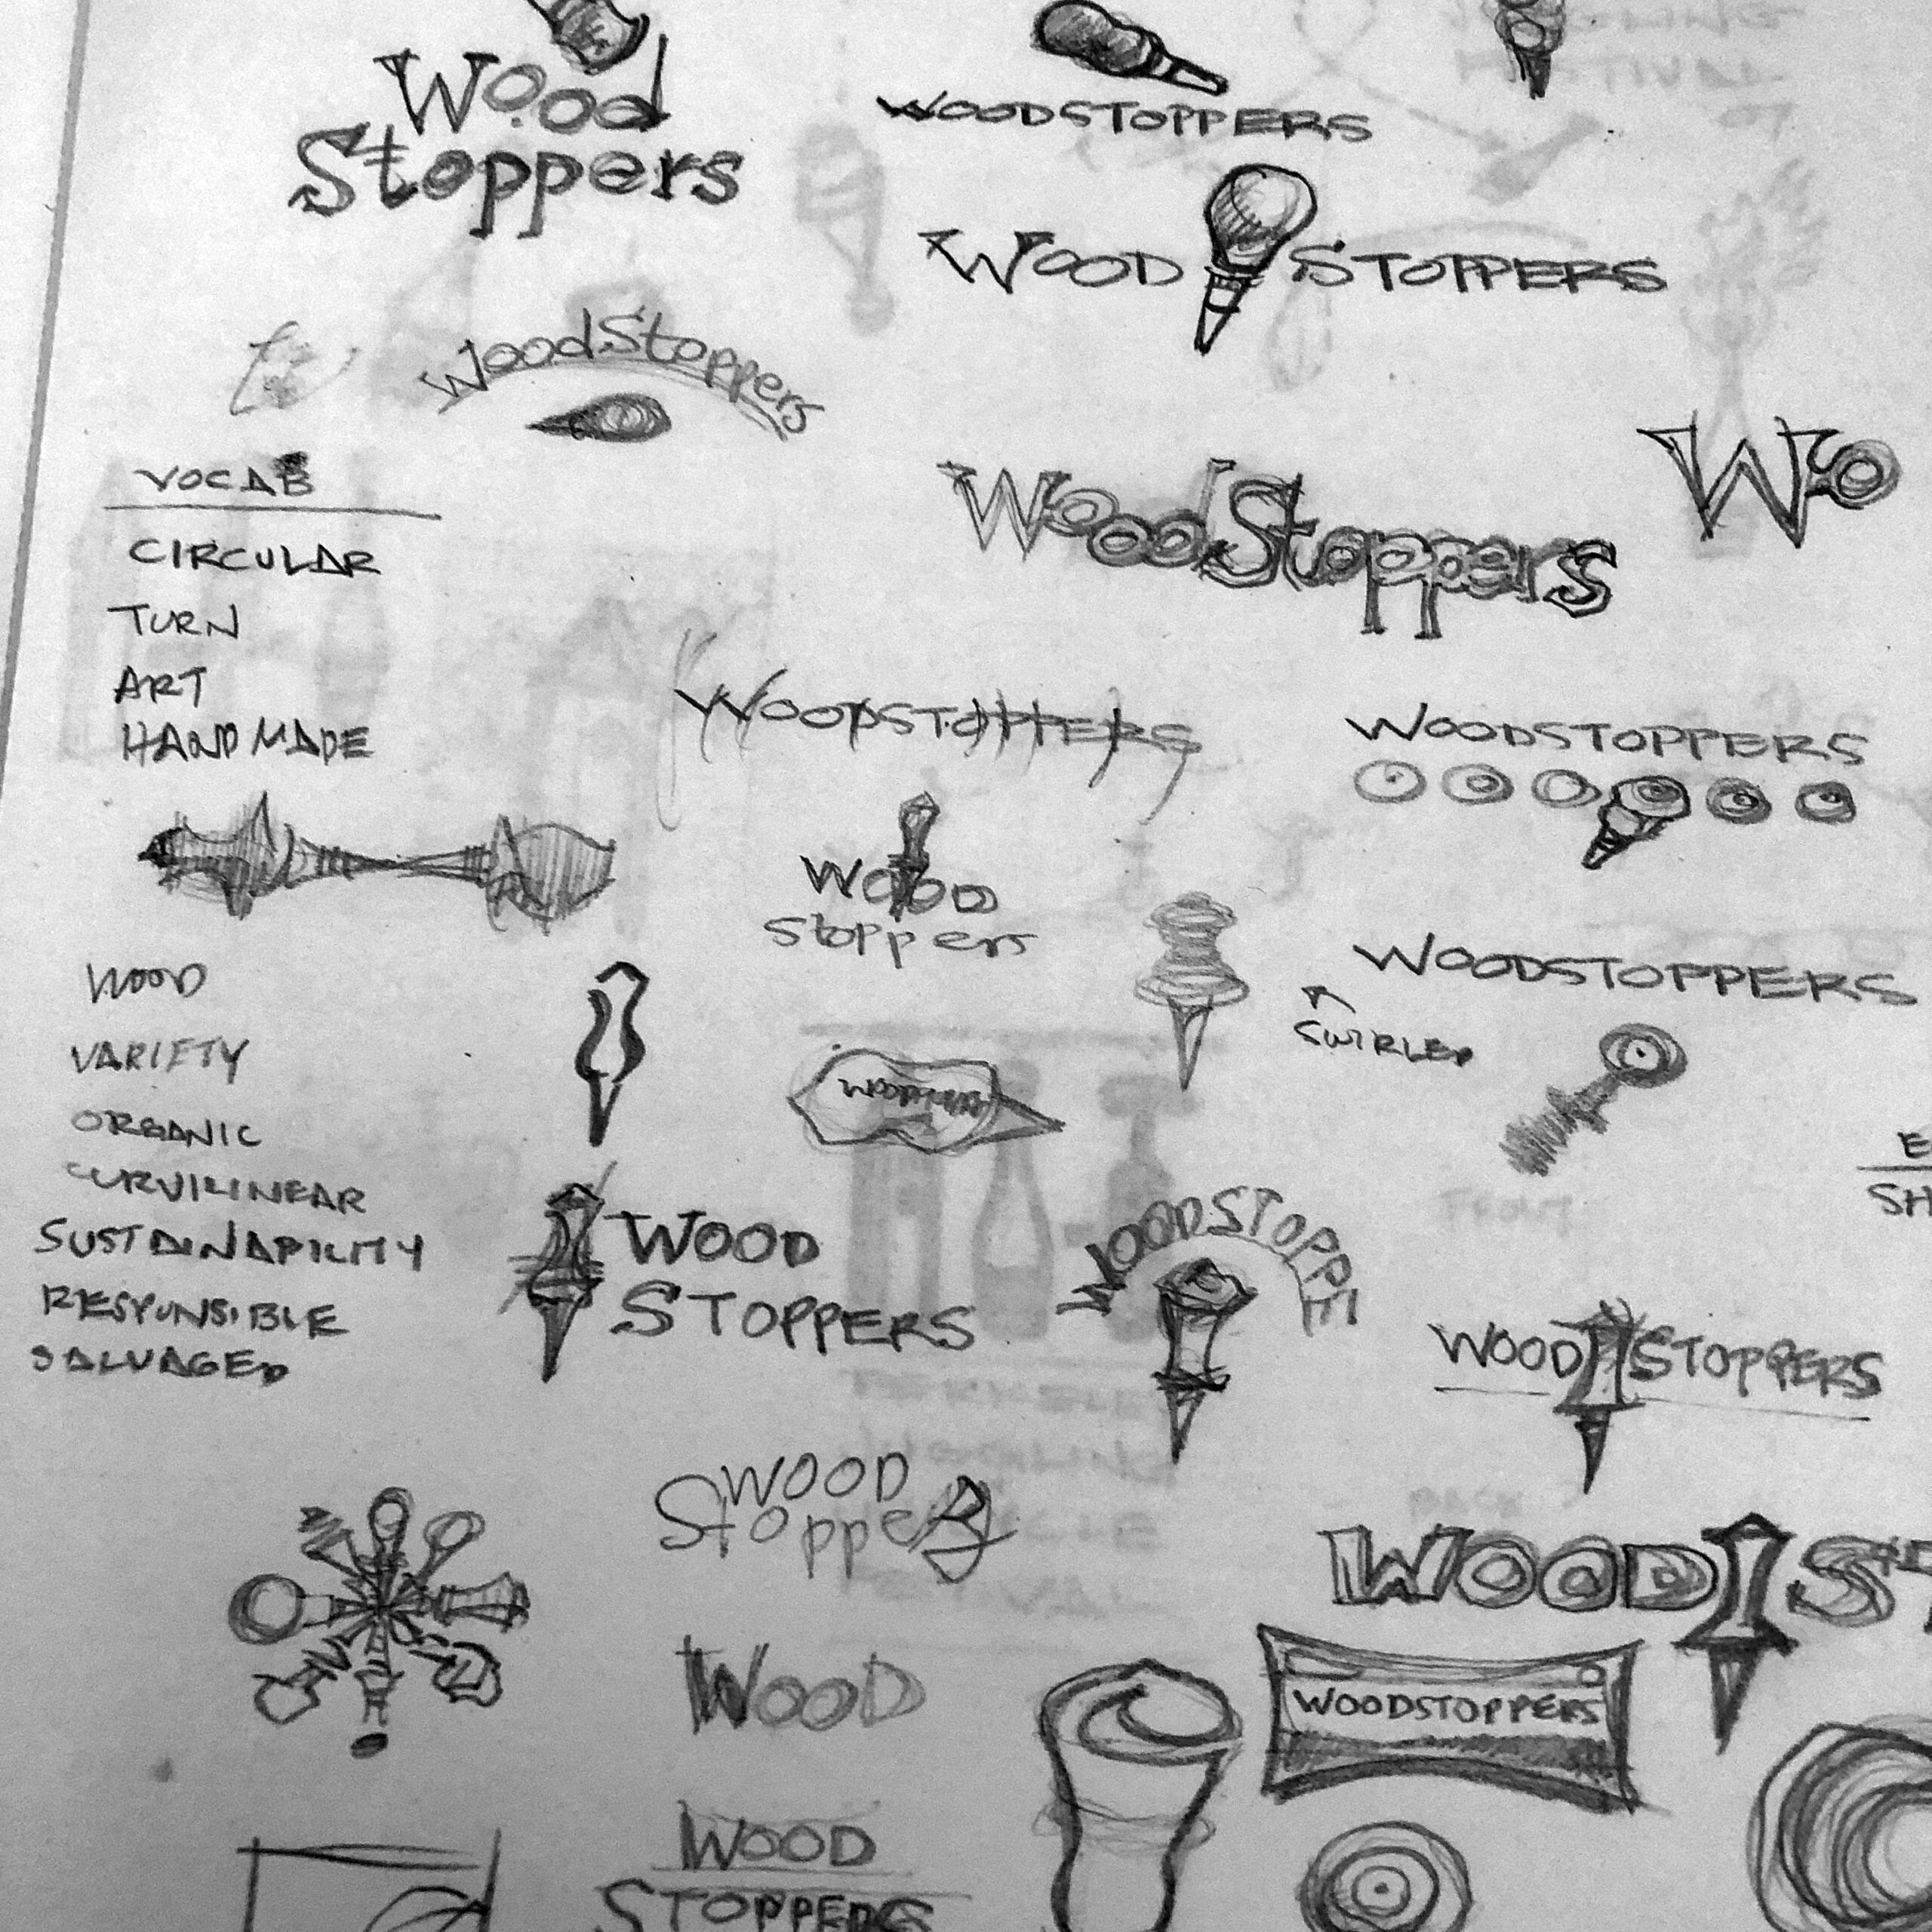 Wood
Stoppers
WOODSTOPPERS
WOOD STOPPERS
WoodStoppers
VOCAB
CIRCULAR
TURN
ART
HANDMADE
WoodStoppers
Wo
WOODSTOPPERS
WOODSTOPPERS
WOOD
Stoppers
WOODSTOPPERS
SWIRLED
WOOD
VARIETY
ORGANIC
CURVILINEAR
SUSTAINABILITY
RESPONSIBLE
SALVAGED
WOOD
STOPPERS
WOODSTOPPE
WOOD STOPPERS
E
SH
FRONT
WOOD
Stoppers
WOOD ST
WOOD
WOODSTOPPERS
WOOD
STOPPERS